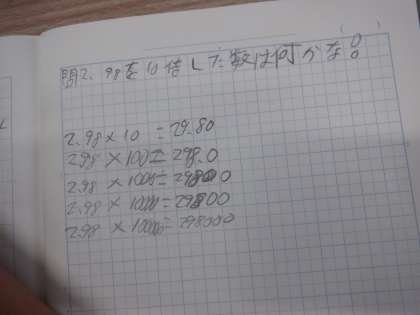 問2.98を10倍した数は何かな。
2.98×10=29.80
2.98×100=298.0
2.98×1000=2980
2.98×10000=29800
2.98×100000=298000